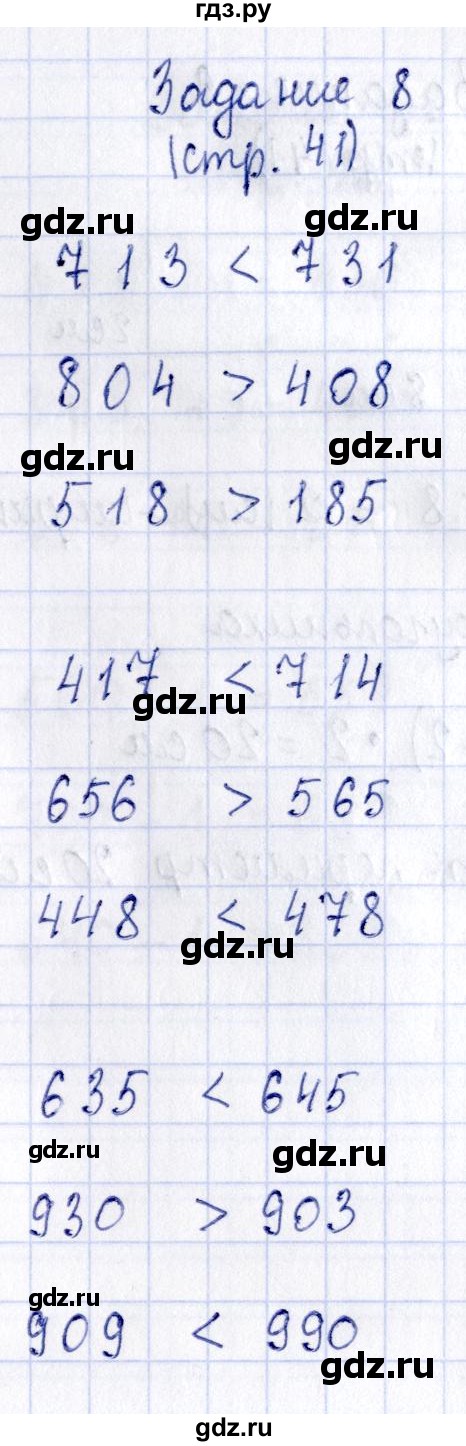 гдз.ру
Задание 8
(стр. 41)
gdz.ru gdz.ru
713 < 731
804 > 408
gdz.ru gdz.ru
518 > 185
417 < 714
gdz.ru
656 > 565
448 < 478
gdz.ru
635 < 645
gdz.ru gdz.ru
930 > 903
gdz.ru
909 < 990
gdz.ru
gdz.ru